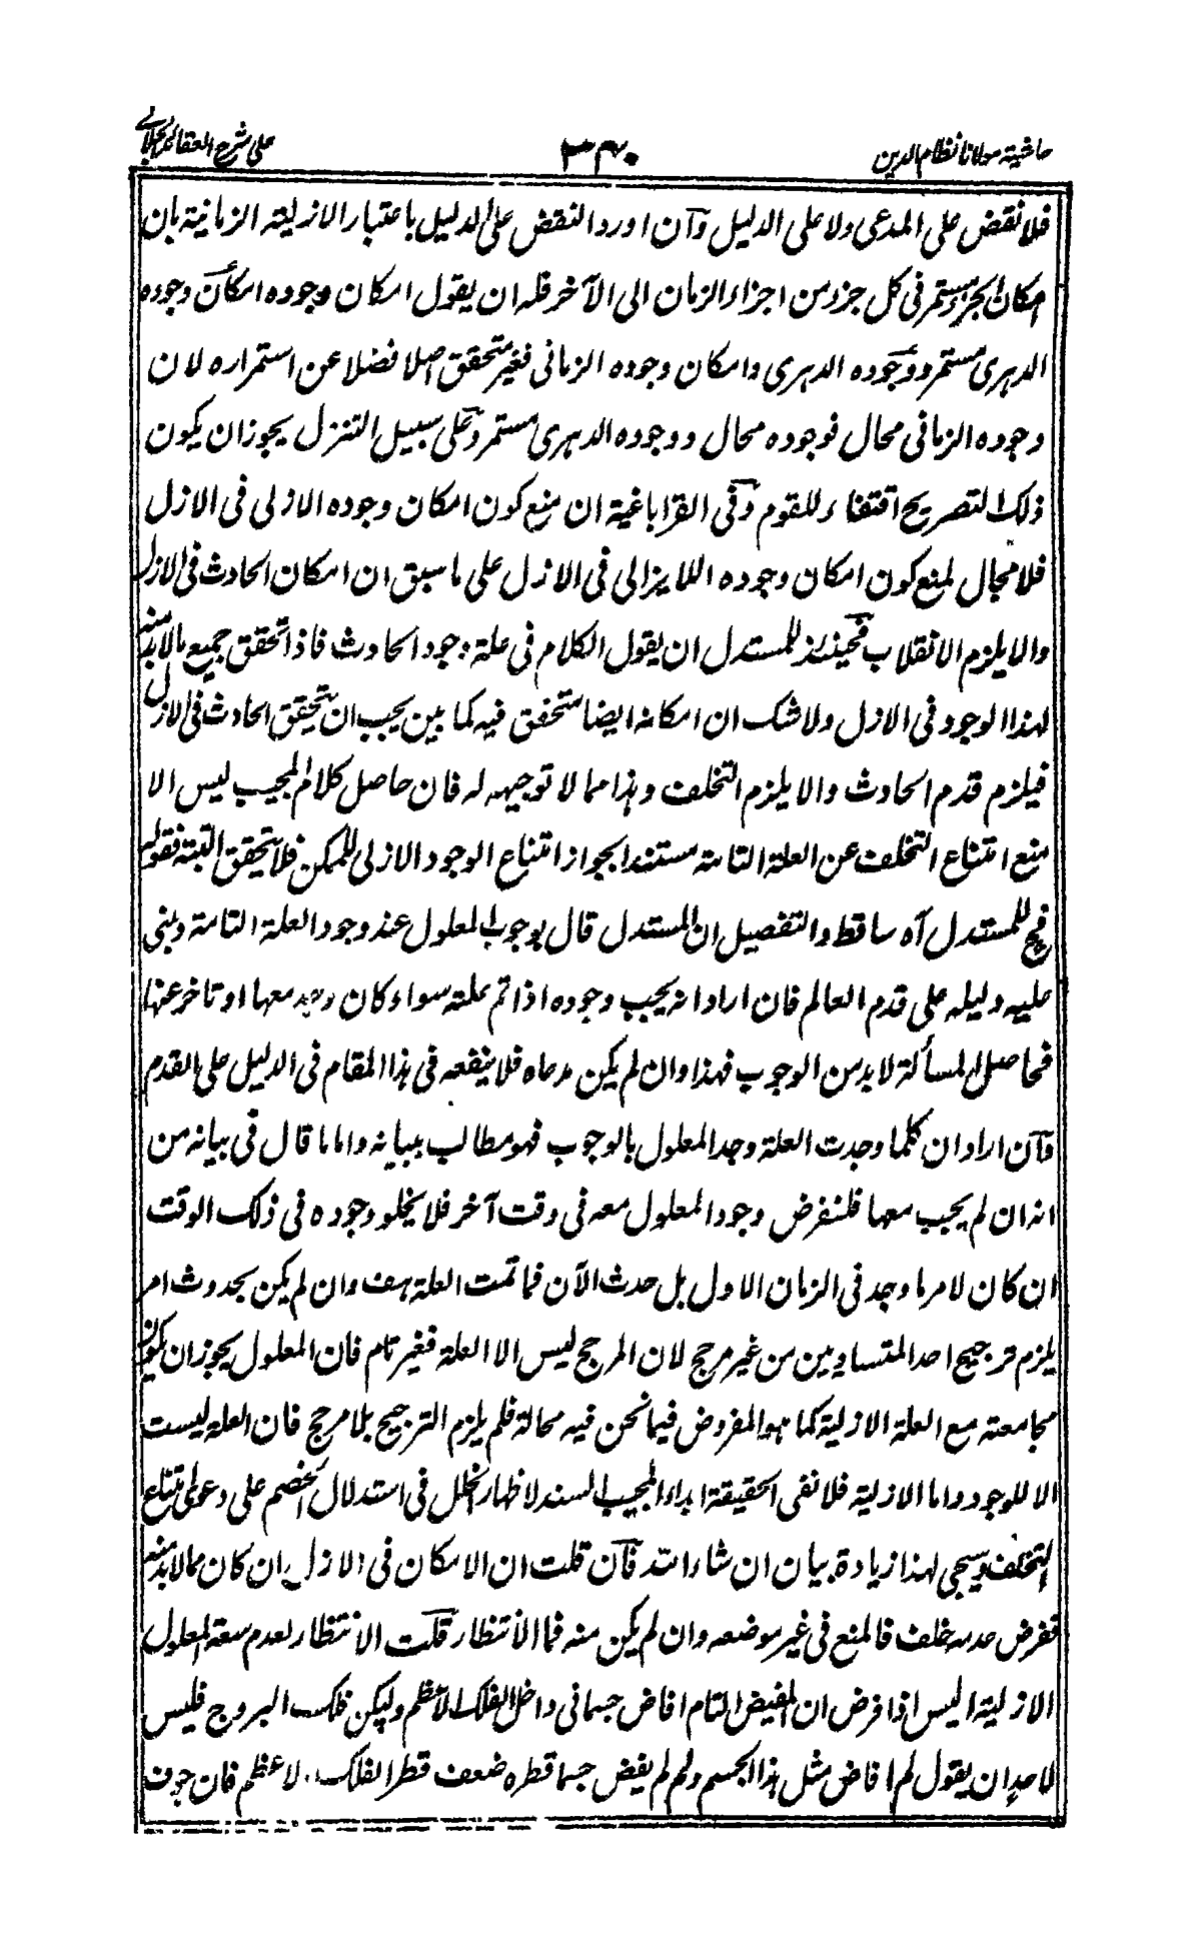 حاشیة مولانا نظام الدین
٣٤٠
علی شرح العقائد الجلالی
فلا نقض علی المدعی ولا علی الدلیل وآن اورد النقض علی الدلیل باعتبار الازلیة الزمانیة بان
امکان الجزء مستمر فی کل جزء من اجزاء الزمان الی الآخر فله ان یقول امکان وجوده امکان وجوده
الدهری مستمر ووجوده الدهری وامکان وجوده الزمانی فغیر متحقق اصلا فضلا عن استمراره لان
وجوده الزمانی محال فوجوده محال ووجوده الدهری مستمر وعلی سبیل التنزل یجوز ان یکون
ذلک التصریح اقتفاء للقوم وفی القراباغیة ان منع کون امکان وجوده الازلی فی الازل
فلا مجال لمنع کون امکان وجوده اللایزالی فی الازل علی ما سبق ان امکان الحادث فی الازل
والا یلزم الانقلاب فحینئذ للمستدل ان یقول الکلام فی علة وجود الحادث فاذا تحقق جمیع مالابد منه
لهذا الوجود فی الازل ولا شک ان امکانه ایضا متحقق فیه کما بین یجب ان یتحقق الحادث فی الازل
فیلزم قدم الحادث والا یلزم التخلف وهذا مما لا توجیه له فان حاصل کلام المجیب لیس الا
منع امتناع التخلف عن العلة التامة مستندا بجواز امتناع الوجود الازلی للممکن فلا یتحقق البتة فقوله
فح للمستدل آه ساقط والتفصیل ان المستدل قال بوجوب المعلول عند وجود العلة التامة وبنی
علیه دلیله علی قدم العالم فان اراد انه یجب وجوده اذا تم علته سواء کان وجد معها او تاخر عنها
فحاصل المسألة لابد من الوجوب فهذا وان لم یکن مدعاه فلا ینفعه فی هذا المقام فی الدلیل علی القدم
وآن اراد ان کلما وجدت العلة وجد المعلول بالوجوب فهو مطالب ببیانه واما ما قال فی بیانه من
انه ان لم یجب معها فلنفرض وجود المعلول معه فی وقت آخر فلا یخلو وجوده فی ذلک الوقت
ان کان لامر ما وجد فی الزمان الاول بل حدث الآن فما تمت العلة هف وان لم یکن بحدوث امر
یلزم ترجیح احد المتساویین من غیر مرجح لان المرجح لیس الا العلة فغیر تام فان المعلول یجوز ان یکون
مجامعته مع العلة الازلیة کما هو المفروض فیما نحن فیه محالة فلم یلزم الترجیح بلا مرجح فان العلة لیست
الا للوجود واما الازلیة فلا نفی الحقیقة ابداء المجیب السند لاظهار الخلل فی استدلال الخصم علی دعوی امتناع
التخلف وسیجی لهذا زیادة بیان ان شاء الله فآن قلت ان الامکان فی الازل ان کان مالابد منه
ففرض عدمه خلف فالمنع فی غیر موضعه وان لم یکن منه فما الانتظار قلت الانتظار لعدم سعة المعلول
الازلیة الیس اذا فرض ان المفیض التام افاض جسمانی داخل الفلک الاعظم ولیکن فلک البروج فلیس
لاحد ان یقول لم افاض مثل هذا الجسم ولم لم یفض جسما قطره ضعف قطر الفلک الاعظم فان جوف